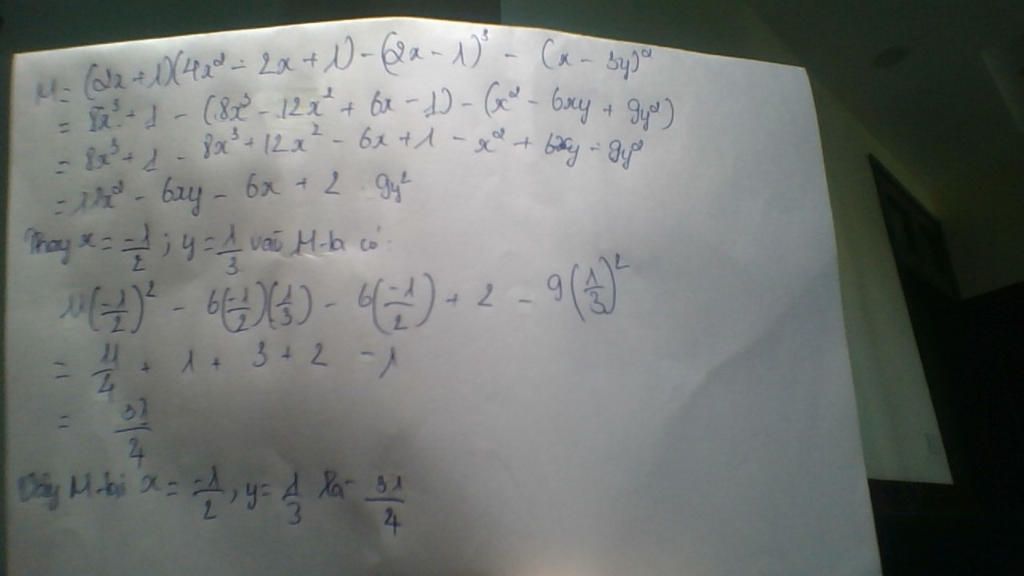 M = (2x + 1)(4x² - 2x + 1) - (2x - 1)³ - (x - 3y)²
= 8x³ + 1 - (8x³ - 12x² + 6x - 1) - (x² - 6xy + 9y²)
= 8x³ + 1 - 8x³ + 12x² - 6x + 1 - x² + 6xy - 9y²
= 11x² - 6xy - 6x + 2 9y²
Thay x = -1/2 ; y = 1/3 vào M ta có:
11(-1/2)² - 6(-1/2)(1/3) - 6(-1/2) + 2 - 9(1/3)²
= 11/4 + 1 + 3 + 2 - 1
= 31/4
Vậy M tại x = -1/2 , y = 1/3 là 31/4